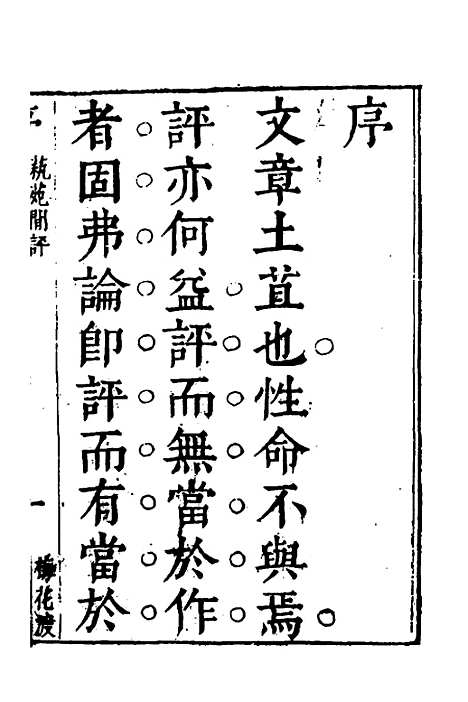 序
文章土苴也性命不與焉
評亦何益評而無當於作
者固弗論卽評而有當於
序
埶苑閒評
一
梅花渡